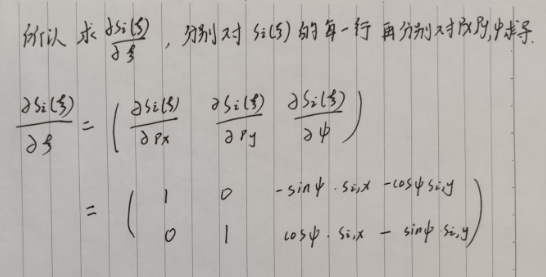 所以 求 ∂Si(ξ)/∂ξ , 分别对 Si(ξ) 的每一行 再分别对Px,Py,ψ求导.
∂Si(ξ)/∂ξ = ( ∂Si(ξ)/∂Px ∂Si(ξ)/∂Py ∂Si(ξ)/∂ψ )
= ( 1 0 -sinψ·si,x -cosψ si,y
0 1 cosψ·si,x - sinψ·si,y )